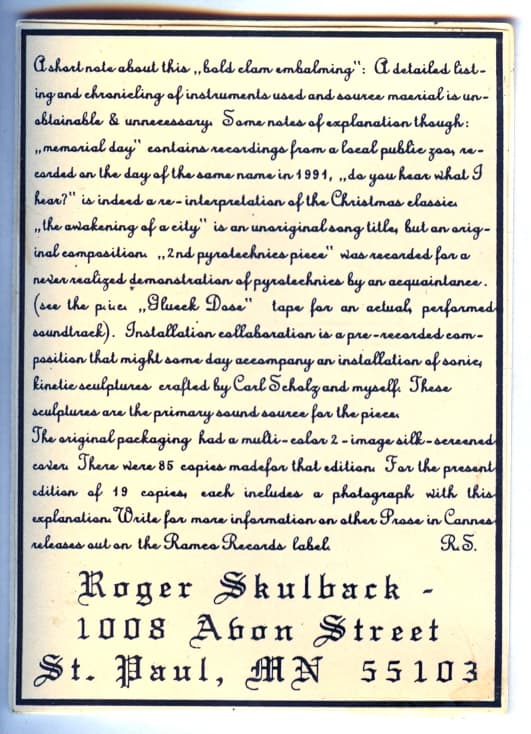 A short note about this „bold clam embalming": A detailed list-
ing and chronicling of instruments used and source maerial is un-
obtainable & unnecessary. Some notes of explanation though:
„memorial day" contains recordings from a local public zoo, re-
corded on the day of the same name in 1991, „do you hear what I
hear?" is indeed a re-interpretation of the Christmas classic.
„the awakening of a city" is an unoriginal song title, but an orig-
inal composition. „2nd pyrotechnics piece" was recorded for a
never realized demonstration of pyrotechnics by an acquaintance.
(see the piece „Glueck Dose" tape for an actual, performed
soundtrack). Installation collaboration is a pre-recorded com-
position that might some day accompany an installation of sonic,
kinetic sculptures crafted by Carl Scholz and myself. These
sculptures are the primary sound source for the piece.
The original packaging had a multi-color 2-image silk-screened
cover. There were 85 copies madefor that edition. For the present
edition of 19 copies, each includes a photograph with this
explanation. Write for more information on other Prose in Cannes
releases out on the Ramco Records label. R.S.
Roger Skulback -
1008 Avon Street
St. Paul, MN 55103